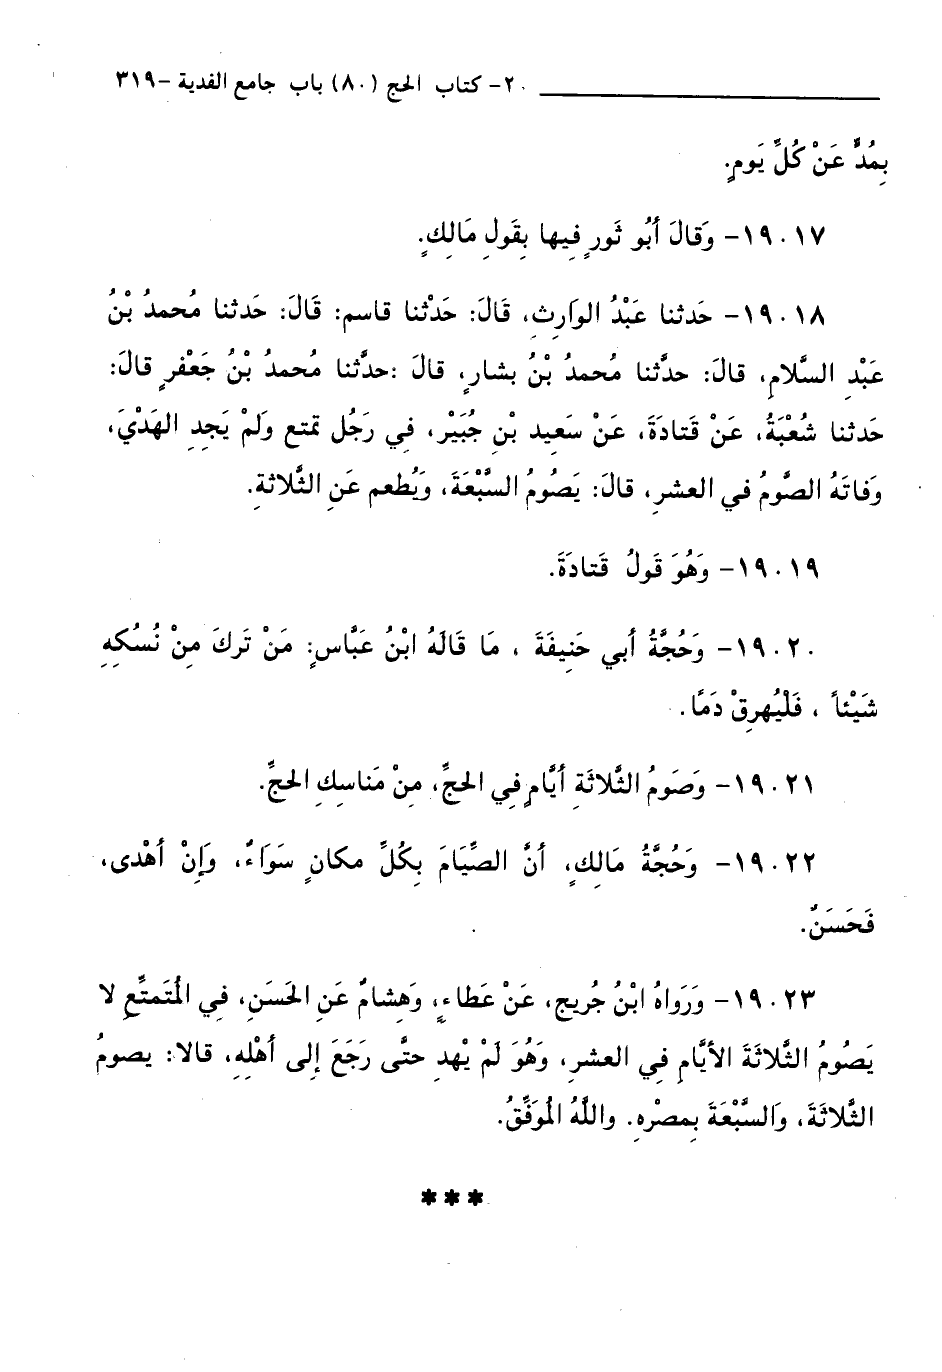 ٢٠- كتاب الحج (٨٠) باب جامع الفدية -٣١٩
بِمُدٍّ عَنْ كُلِّ يَومٍ.
١٩٠١٧- وَقالَ أَبُو ثَورٍ فِيها بِقَولِ مَالِكٍ.
١٩٠١٨- حَدثنا عَبْدُ الوَارِثِ، قَالَ: حَدْثنا قاسم: قَالَ: حَدثنا مُحمدُ بْنُ
عَبْدِ السَّلامِ، قالَ: حدَّثنا مُحمدُ بْنُ بشارٍ، قالَ :حدَّثنا مُحمدُ بْنُ جَعْفرٍ قالَ:
حَدثنا شُعْبَةُ، عَنْ قَتادَةَ، عَنْ سَعِيدِ بْنِ جُبَيْرٍ، فِي رَجُل تمتع وَلَمْ يَجِدِ الهَدْيَ،
وَفاتَهُ الصَّومُ في العشرِ، قالَ: يَصُومُ السَّبْعَةَ، وَيُطعم عَنِ الثَّلاثةِ.
١٩٠١٩- وَهُوَ قَولُ قَتادَةَ.
١٩٠٢٠- وَحُجَّةُ أبي حَنِيفَةَ ، مَا قَالَهُ ابْنُ عَبَّاسٍ: مَنْ تَركَ مِنْ نُسُكِهِ
شَيْئاً ، فَلْيُهرِقْ دَمًا.
١٩٠٢١- وَصَومُ الثَّلاثَةِ أيَّامٍ فِي الحَجِّ، مِنْ مَناسِكِ الحَجِّ.
١٩٠٢٢- وَحُجَّةُ مَالِكٍ، أنَّ الصِّيَامَ بِكُلِّ مكانٍ سَوَاءٌ، وَإِنْ أهْدى،
فَحَسَنٌ.
١٩٠٢٣- وَرَواهُ ابْنُ جُريج، عَنْ عَطاءٍ، وَهِشامٌ عَنِ الحَسَنِ، فِي المُتَمتِّعِ لا
يَصُومُ الثَّلاثَةَ الأيَّامِ فِي العشرِ، وَهُوَ لَمْ يْهدِ حتَّى رَجَعَ إِلى أهْلِهِ، قالا: يصومُ
الثَّلاثَةَ، وَالسَّبْعَةَ بِمصْرِهِ. واللَّهُ المُوَفِّقُ.
***